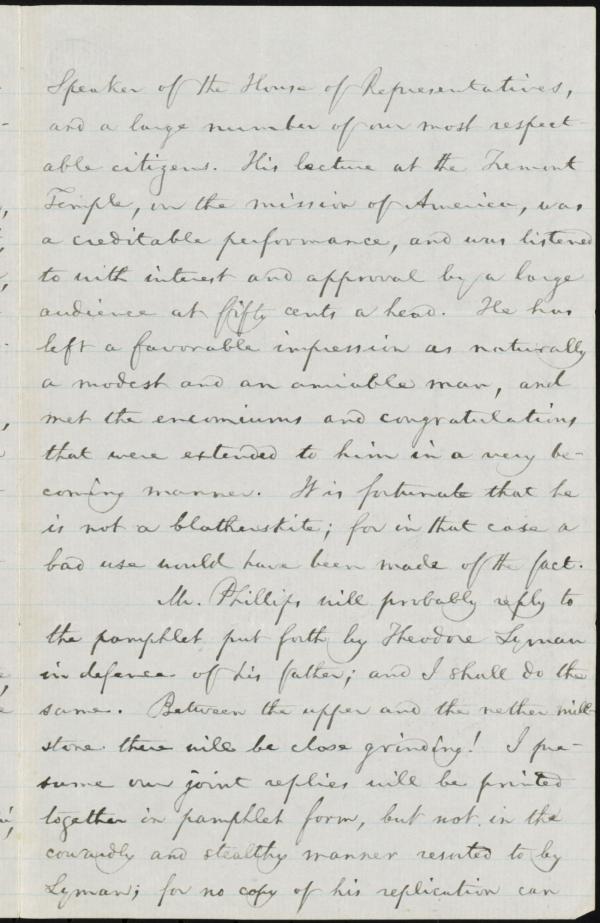 Speaker of the House of Representatives,
and a large number of our most respect-
able citizens. His lecture at the Tremont
Temple, on the mission of America, was
a creditable performance, and was listened
to with interest and approval by a large
audience at fifty cents a head. He has
left a favorable impression as naturally
a modest and an amiable man, and
met the encomiums and congratulations
that were extended to him in a very be-
coming manner. It is fortunate that he
is not a blatherskite; for in that case a
bad use would have been made of the fact.
Mr. Phillips will probably reply to
the pamphlet put forth by Theodore Lyman
in defence of his father; and I shall do the
same. Between the upper and the nether mill-
stone there will be close grinding! I pre-
sume our joint replies will be printed
together in pamphlet form, but not in the
cowardly and stealthy manner resorted to by
Lyman; for no copy of his replication can